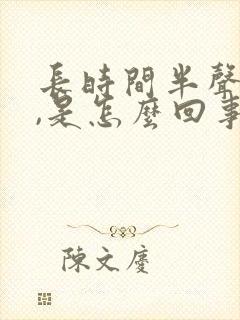 長時間半聲
,是怎麼回事
陳文慶